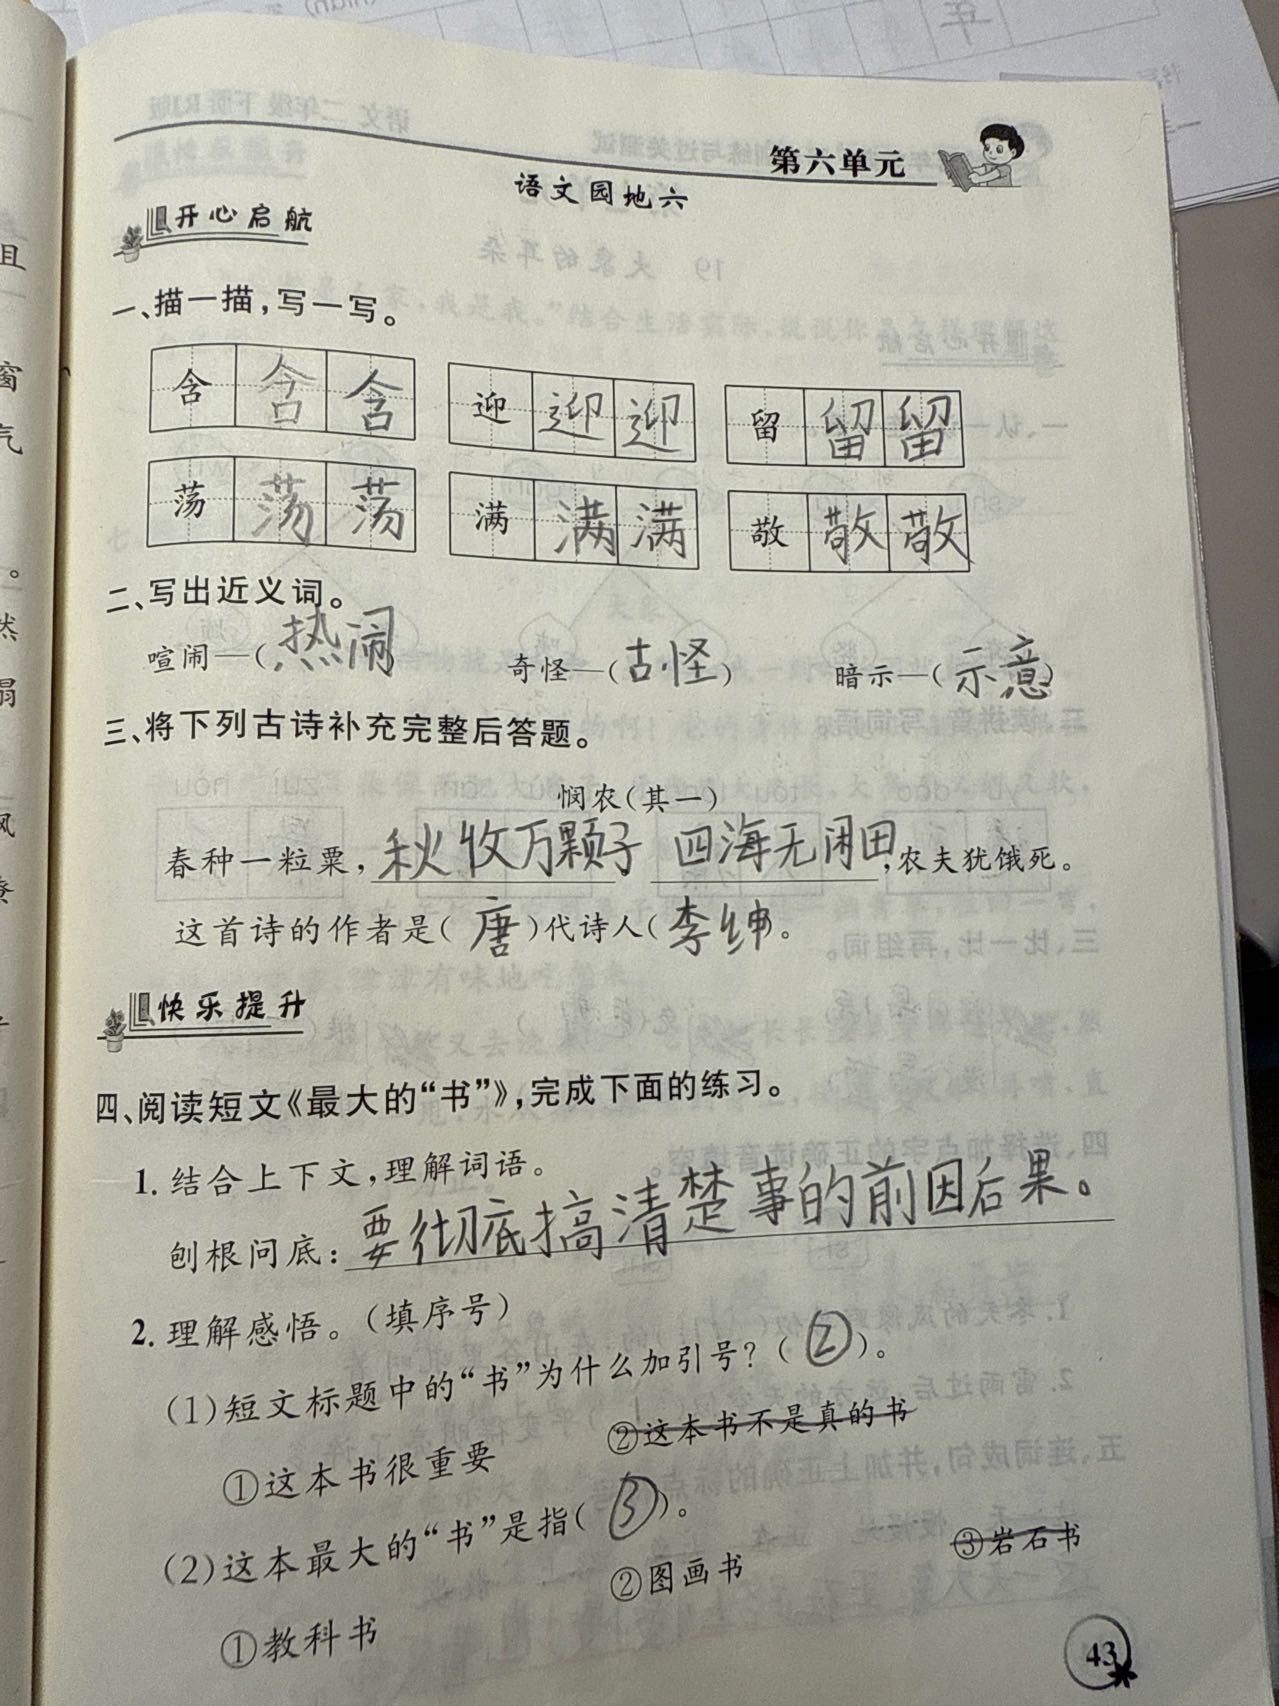 第六单元
语文园地六
开心启航
一、描一描,写一写。
含 含 含 迎 迎 迎 留 留 留
荡 荡 荡 满 满 满 敬 敬 敬
二、写出近义词。
喧闹—(热闹) 奇怪—(古怪) 暗示—(示意)
三、将下列古诗补充完整后答题。
悯农(其一)
春种一粒粟,秋收万颗子 四海无闲田,农夫犹饿死。
这首诗的作者是(唐)代诗人(李绅。
快乐提升
四、阅读短文《最大的“书”》,完成下面的练习。
1. 结合上下文,理解词语。
刨根问底:要彻底搞清楚事的前因后果。
2. 理解感悟。(填序号)
(1)短文标题中的“书”为什么加引号?(②)。
①这本书很重要 ②这本书不是真的书
(2)这本最大的“书”是指(③)。
①教科书 ②图画书 ③岩石书
43